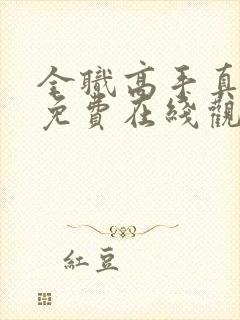 全職高手真
免費在綫觀
紅豆